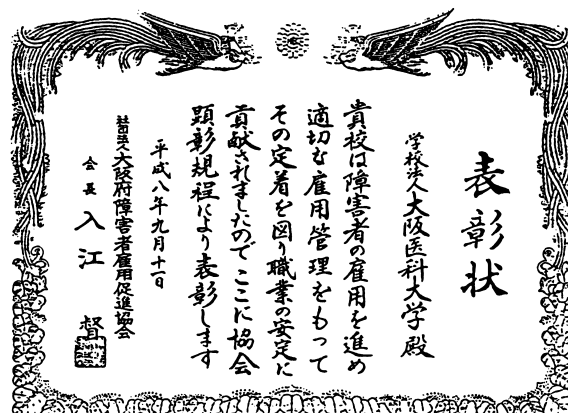 表彰状
学校法人大阪医科大学殿
貴校は障害者の雇用を進め
適切な雇用管理をもって
その定着を図り職業の安定に
貢献されましたのでここに協会
顕彰規程により表彰します
平成八年九月十一日
社団法人大阪府障害者雇用促進協会
会長 入江 督